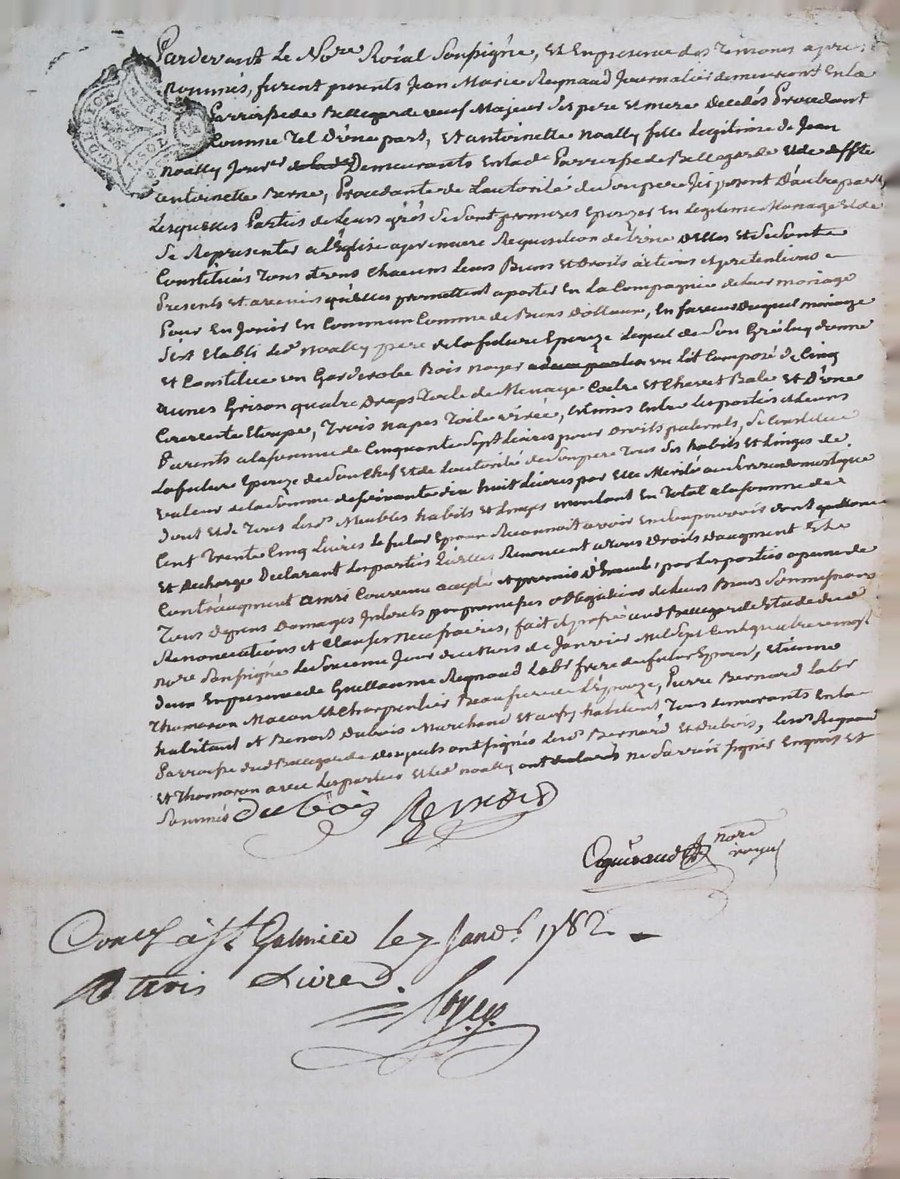 Pardevant Le No.re Roïal Soussigné, Et En presence des Temoins apres
nommés, furent presents Jean Marie Reynaud Journalier demeurant En la
Parroisse de Bellegarde veuf Majeur Ses pere et mere Decedés Procedant
Comme Tel D'une part, Et antoinette noally fille Legitime de Jean
noally Jour.er Demeurants En lad. Parroisse de Bellegarde et de deffte
antoinette Berne, Procedante de L'autorité de Son pere Icy present D'autre part
Lesquelles Parties de Leurs grés Se Sont promises Epouzer En Legitime Mariage Et de
Se Representer a L'Eglise a premiere Requisition de L'une D'elles Et Se Sont
Constitués Tous Et uns Chacuns Leurs Biens Et Droits actions et pretentions
Presents et avenir qu'elles promettent aporter En la Compagnie de leur mariage
Pour En Jouir En Commun Comme de Biens Dottaux, En faveur Duquel mariage
S'est Etabli led. noally pere de la future Epouze Lequel de Son Gré luy donne
et Constitue un Garderobe Bois noyer un Lit Composé de Cinq
aunes Grison quatre Draps Toile de Menage Coitre Et Chevet Bale Et D'une
Couverte Etoupe, Trois napes Toile virée, Estimés Entre les parties et leurs
Parents a la somme de Cinquante Sept Livres pour Droits paternels, Se Constitue
La future Epouze de Son Chef Et de L'autorité de Son pere Tous Ses habits Et Linges de
valeur de la Somme de soixante dix huit Livres par Elle Merité au Service domestique
dont Et de Tous Lesd. Meubles habits et Linges montant En Total a la somme de
Cent Trente Cinq Livres le futur Epoux Reconnoit avoir En Son pouvoir dont quittance
Et decharge Declarant les parties qu'elles Renoncent a Tous Droits D'augment Et de
Contr'augment ainsi Convenu accepté et promis D'Executer par les parties a peine de
Tous depens Domages Interets par promesses obligations de leurs Biens Soumissions
Renonciations et Clauses Necessaires, fait et passé aud. Bellegarde Etude dud.
no.re Soussigné Le Jour du mois de Janvier Mil Sept Cent quatre vingt
deux En presence de Guillaume Reynaud Lab.r frere du futur Epoux, Etienne
Thomaron Maçon Et Charpentier Beaufrere de L'Epouze, Pierre Bernard Lab.r
habitant et Benoit Dubois Marchand Tous demeurants En la
Parroisse dud. Bellegarde desquels ont Signés Lesd. Bernard Et Dubois, Lesd. Reynaud
Et Thomaron avec Les parties Et led. noally ont declarés ne Savoir Signer Enquis Et
Sommés
dubois Bernard
no.re
royal
Con.lé à St. Galmier Le 7 Janv.r 1782.
R trois Livres